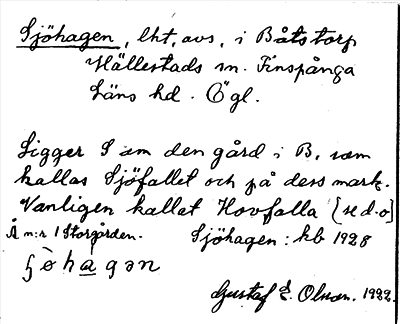 Sjöhagen, lht, avs, i Båtstorp
Hällestads sn. Finspånga
Läns hd. Ögl.
Ligger S om den gård i B, som
kallas Sjöfallet och på dess mark.
Vanligen kallat Hovfalla [se d.o]
Å n:r 1 Storgården. Sjöhagen: kb 1928
Gustaf E. Olson. 1932.